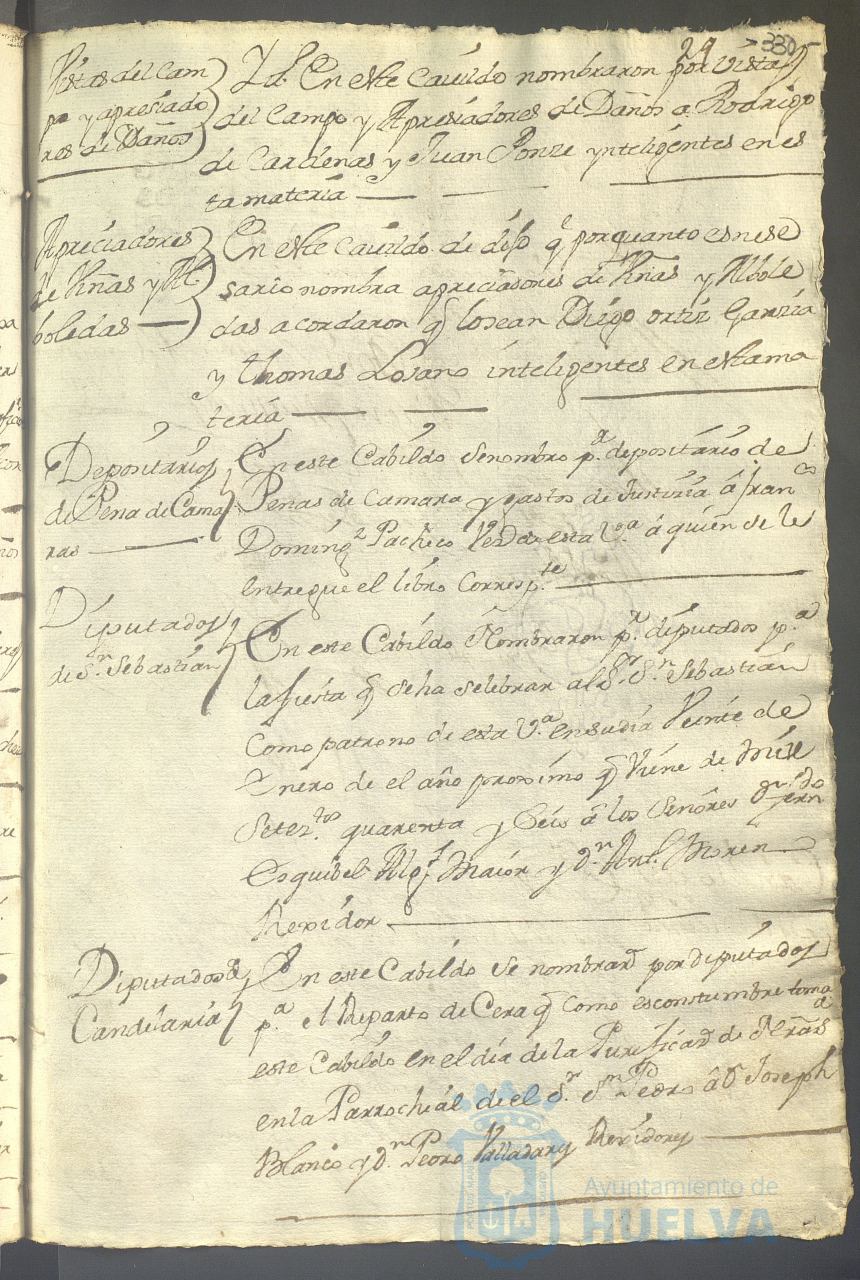 24 330
Vistas del Cam
po y apresiado
res de Daños
Yd. En este Cavildo nombraron por Vistas
del Campo y Apresiadores de Daños a Rodrigo
de Cardenas y Juan Ponze ynteligentes en es
ta materia
Apreciadores
de Viñas y Ar
boledas
En este Cavildo de dijo q porquanto es nese
sario nombra apreciasores de Viñas y Albole
das acordaron q lo sean Diego ortiz Garzia
y thomas Losano inteligentes en esta ma
teria
Depositarios
de Pena de Cama
ras
En este Cabildo se nombro p.a depositario de
Penas de Camara y gastos de Justizia â Fran.co
Doming.z Pacheco de esta V.a â quien se le
entregue el libro Corresp.te
Diputados
de S.n Sebastian
En este Cabildo Nombraron p.r diputados p.a
la fiesta q se ha selebrar al S.r S.n Sebastian
Como patrono de esta V.a en su dia Veinte de
Enero de el año proximo q Viene de Mill
Setez.tos quarenta y Seis â los Señores D.n Fern.do
Esquibel Alg.l Maior y D.n Ant.o Moreno
Rexidor
Diputados de
Candelaria
En este Cabildo se nombraro por diputados
p.a el Reparto de Cera q Como es constumbre toma
este Cabildo en el dia de la Purificaon de N.ra S.ra
en la Parrochial de el S.r S.n Pedro â D.n Joseph
Blanco y D.n Pedro Valladares Rexidores
Ayuntamiento de
HUELVA